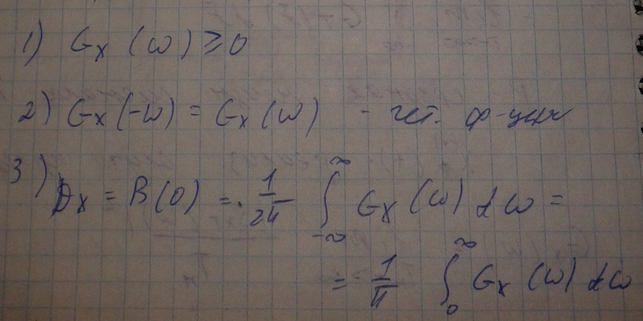 1) Gx (ω) ≥ 0
2) Gx (-ω) = Gx (ω) - чет. ф-ция
3) Dx = B(0) = 1/2π ∫_{-∞}^{∞} Gx (ω) dω =
= 1/π ∫_{0}^{∞} Gx (ω) dω